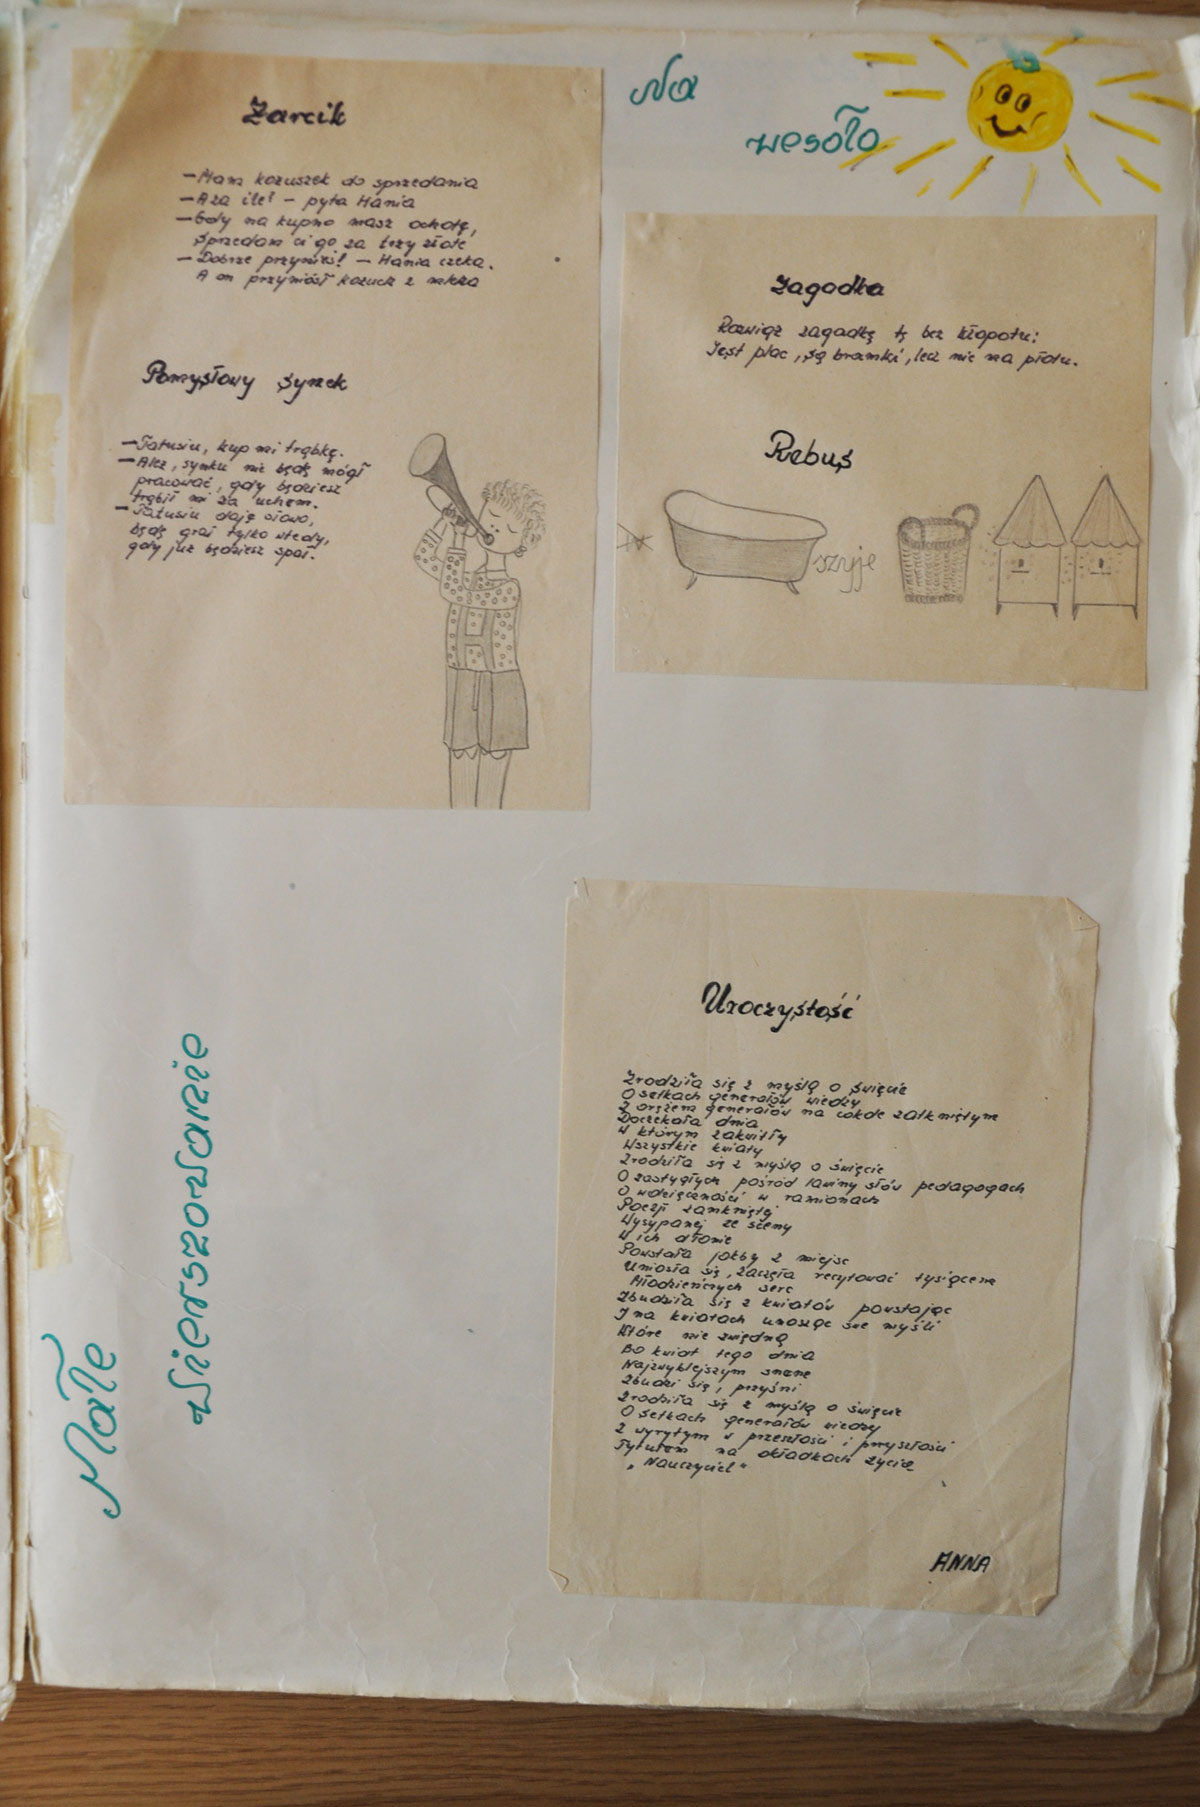 Na
wesoło
Żarcik
– Mam kożuszek do sprzedania
– A za ile! – pyta Hania
– Gdy na kupno masz ochotę,
Sprzedam ci go za trzy złote
– Dobrze przynieś! – Hania czeka.
A on przyniósł kożuch z mleka
Pomysłowy synek
– Tatusiu, kup mi trąbkę.
– Ależ, synku nie będę mógł
pracować, gdy będziesz
trąbił mi za uchem.
– Tatusiu daję słowo,
będę grał tylko wtedy,
gdy już będziesz spał.
Zagadka
Rozwiąż zagadkę tę bez kłopotu:
Jest plac, są bramki, lecz nie ma płotu.
Rebus
szyje
Małe
wierszowanie
Uroczystość
Zrodziła się z myślą o święcie
O setkach generałów wiedzy
Z orężem generałów na cokole zatkniętym
Doczekała dnia
W którym zakwitły
Wszystkie kwiaty
Zrodziła się z myślą o święcie
O zastygłych pośród lawiny słów pedagogach
O wdzięczności w ramionach
Poezji zamkniętej
Wysypanej ze sceny
W ich dłonie
Powstała jakby z miejsc
Uniosła się, zaczęła recytować tysiącem
Młodzieńczych serc
Zbudziła się z kwiatów powstając
I na kwiatach unosząc swe myśli
Które nie zwiędną
Bo kwiat tego dnia
Najzwyklejszym snem
Zbudzi się, przyśni
Zrodziła się z myślą o święcie
O setkach generałów wiedzy
Z wyrytym w przeszłości i przyszłości
Tytułem na okładkach życia
„Nauczyciel"
ANNA